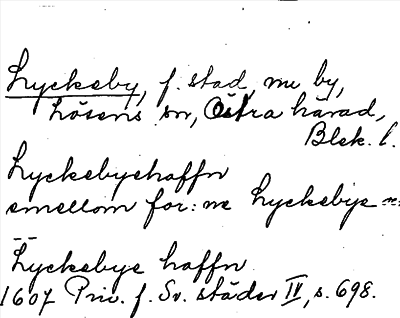 Lyckeby, f. stad, nu by,
Lösens sn, Östra härad,
Blek. l.
Lyckebyehaffn
emellom for: ne Lyckebye =
Lyckebye haffn
1607 Priv. f. Sv. städer IV, s. 698.